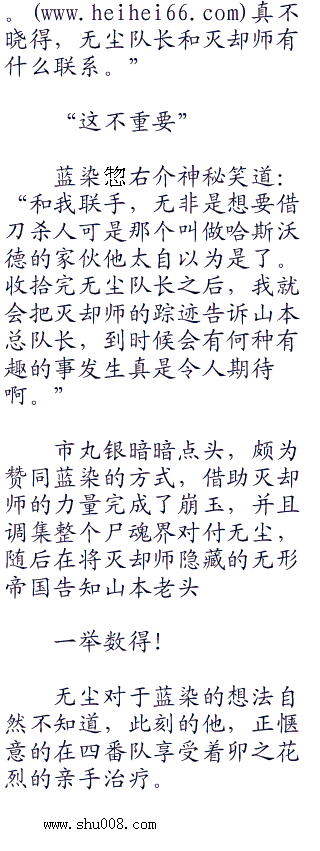 。(www.heihei66.com)真不
晓得，无尘队长和灭却师有
什么联系。”
“这不重要”
蓝染惣右介神秘笑道：
“和我联手，无非是想要借
刀杀人可是那个叫做哈斯沃
德的家伙他太自以为是了。
收拾完无尘队长之后，我就
会把灭却师的踪迹告诉山本
总队长，到时候会有何种有
趣的事发生真是令人期待
啊。”
市丸银暗暗点头，颇为
赞同蓝染的方式，借助灭却
师的力量完成了崩玉，并且
调集整个尸魂界对付无尘，
随后在将灭却师隐藏的无形
帝国告知山本老头
一举数得！
无尘对于蓝染的想法自
然不知道，此刻的他，正惬
意的在四番队享受着卯之花
烈的亲手治疗。
www.shu008.com